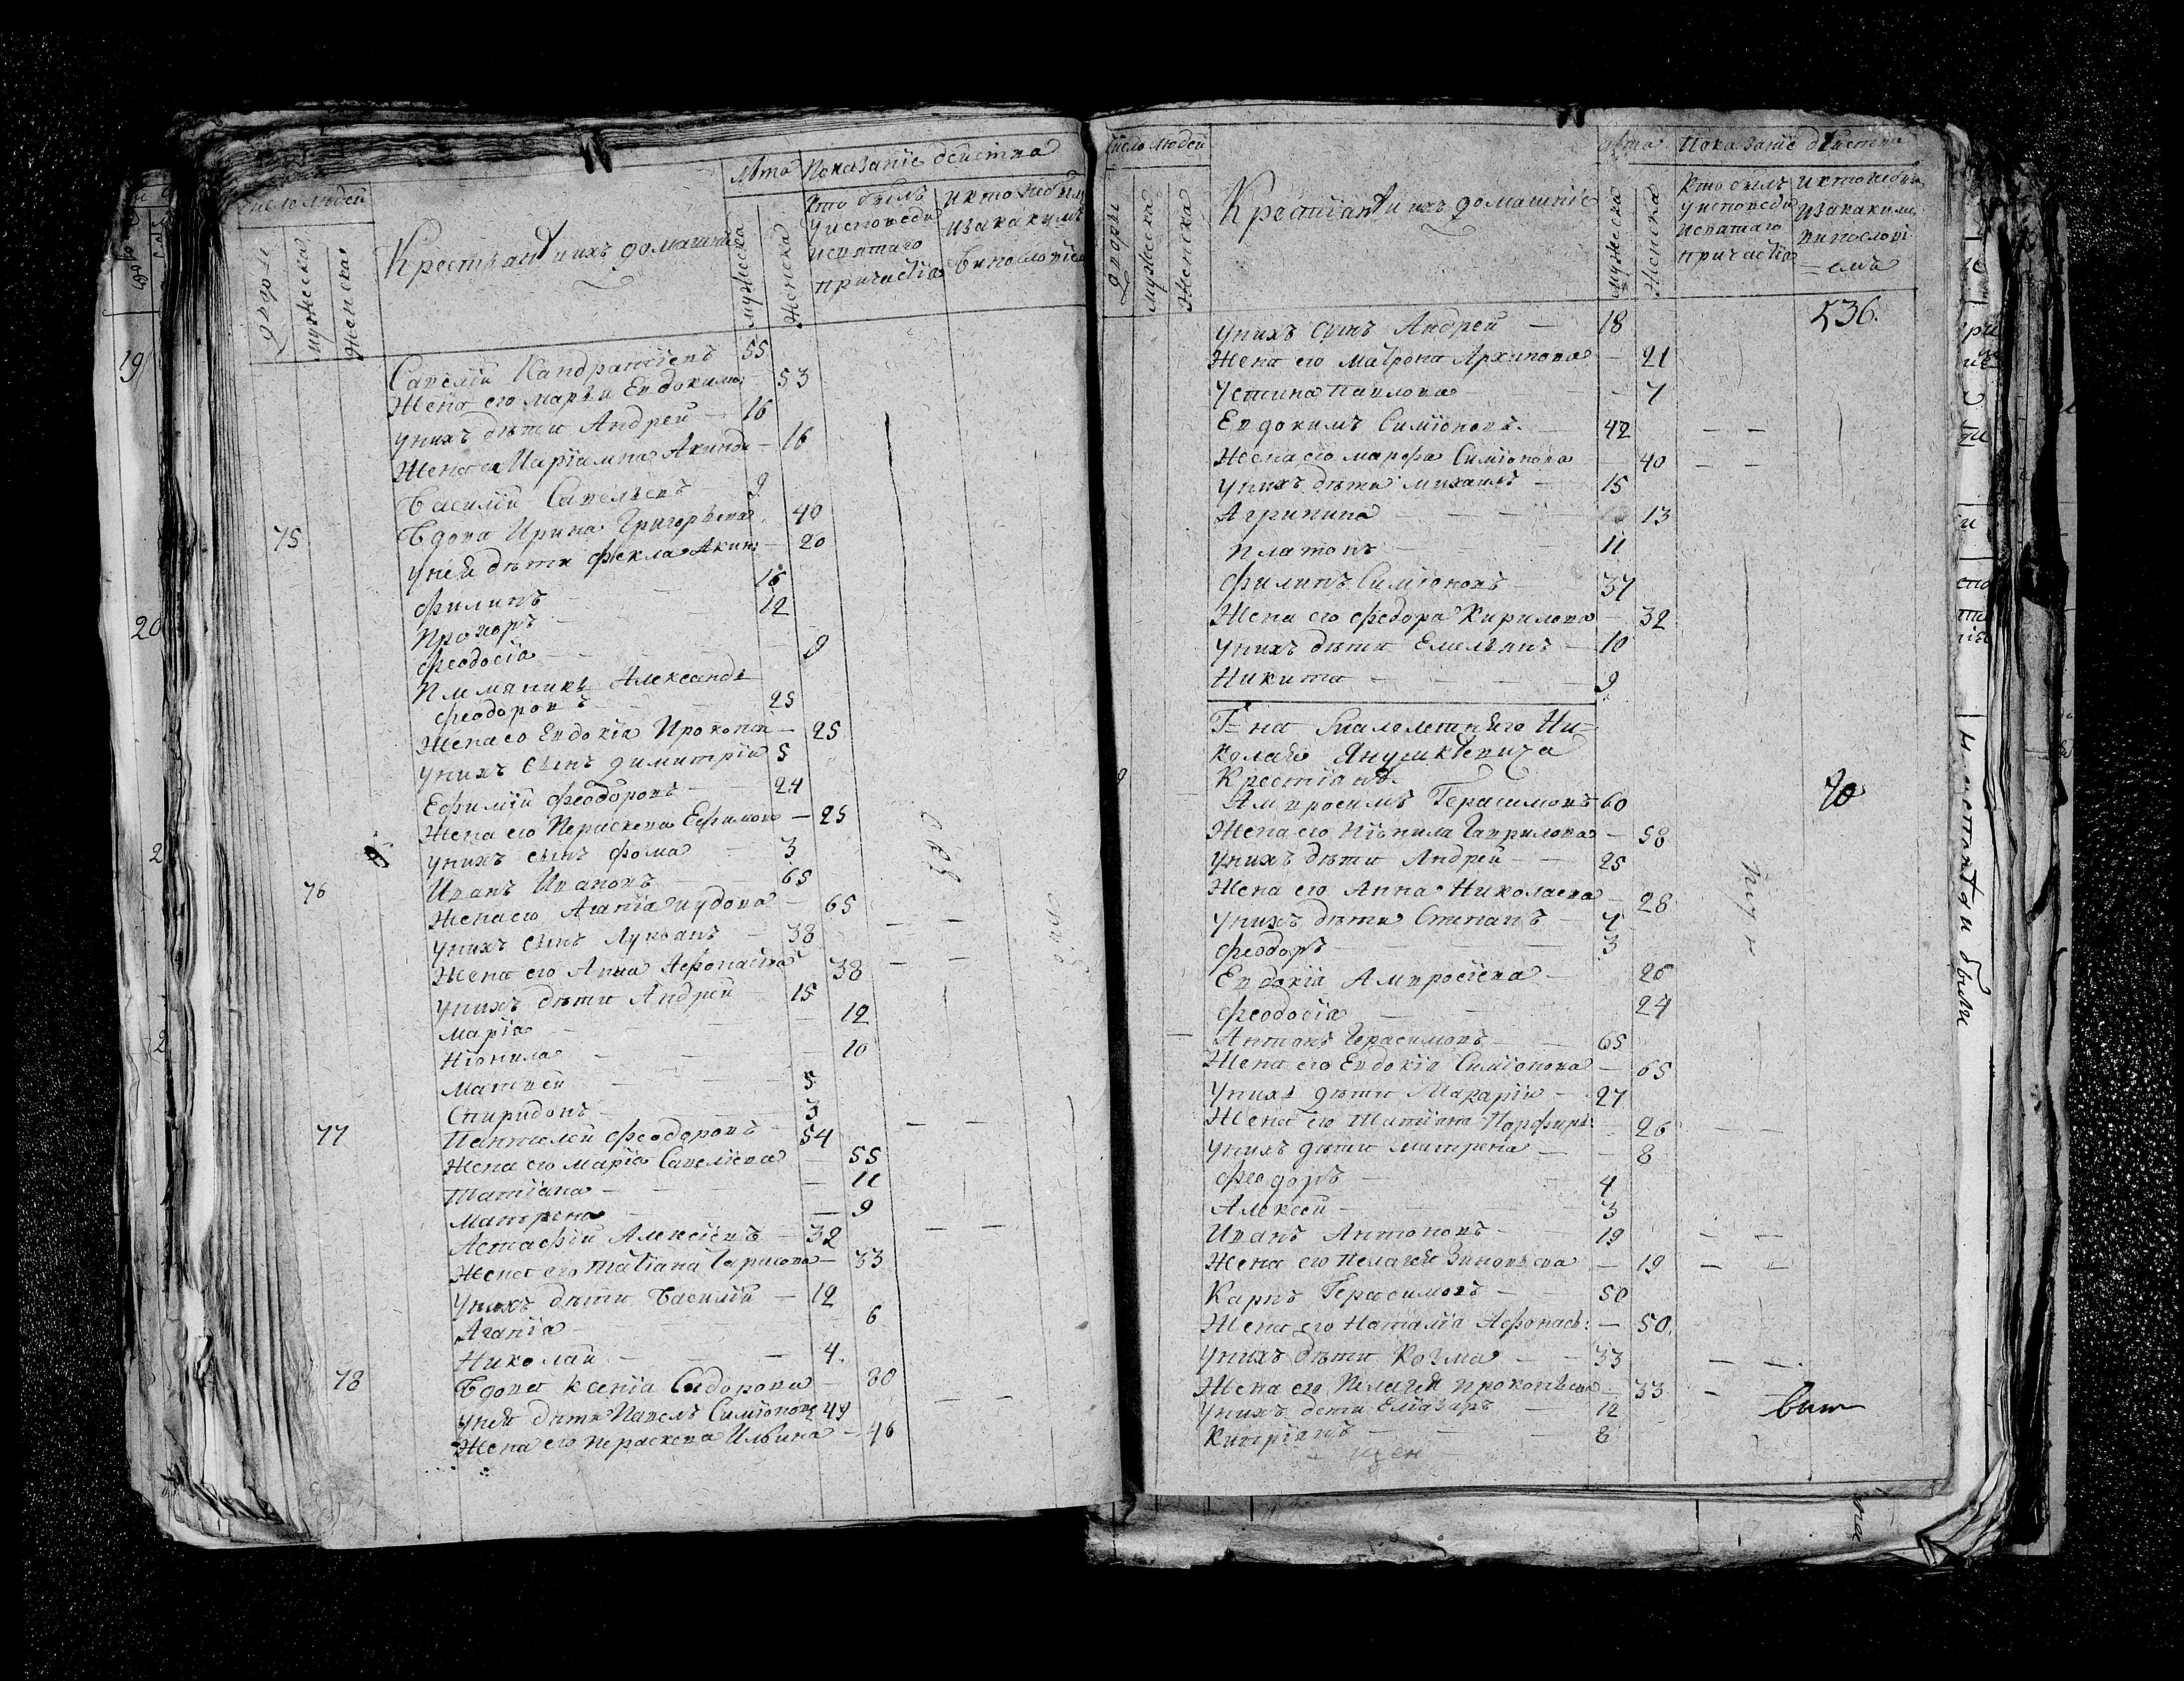 Число людей
Лѣта Показаніе действа
мужеска
женская
Крестьянѣ и ихъ домашніе
мужеска
женска
кто былъ у исповеди и святаго причастія
и кто небылъ и за какимъ винословіем
Савелій Кандратіевъ 55
Жена его марѳа Евдокимо: 53
у нихъ дѣти Андрей — 16
Жена его Маріамна Акинди — 16
Василій Савельевъ 9
75 Вдова Ирина Григорьева 40
у ней дѣти Фекла Акин: — 20
Филипъ 16
Прохоръ 12
Феодосіа 9
Племяникъ Александъ
Феодоровъ 25
Жена его Евдокіа Прокопіе — 25
у нихъ сынъ Димитрій 5
Ефимій Феодоровъ — 24
Жена его Параскева Ефимова — 25
у нихъ сынъ Фома 3
76 Иванъ Ивановъ 65
Жена его Агапіа Иудова — 65
у нихъ сынъ Лукьянъ — 38
Жена его Анна Афонасіева 38
у нихъ дѣти Андрей — 15
Маріа 12
Неонила 10
Матвей 5
Спиридонъ 3
77 Пантелей Феодоровъ 54
Жена его Маріа Савеліева 55
Татіана — 11
Матрена — 9
Астафій Алексіевъ — 32
Жена его Татіана Гаврилова — 33
у нихъ дѣти Василій — 12
Агапіа — 6
Николай — 4.
78 Вдова Ксеніа Сидорова — 80
у ней дѣти Павелъ Симіоновъ 49
Жена его Параскева Ильина — 46
Число людей
Лѣта Показаніе действа
Дворы
мужеска
женска
Крестіанѣ и ихъ домашніе
мужеска
женска
кто былъ у исповеди и святаго причастіа
и кто небылъ и за какимъ винослові=емъ
536.
у нихъ сынъ Андрей — 18
Жена его Матрона Архипова — 21
Устина Павлова — 7
Евдокимъ Симіоновъ. 42
Жена его марфа Симіонова 40
у нихъ дѣти михаилъ — 15
Агрипина 13
Платонъ 11
Филипъ Симіоновъ 37
Жена его Федора Кирилова — 32
у нихъ дѣти Емельянъ — 10
Никита 9
Г=на Малолетнѣго Ни-
колаѣ Янушкѣевича
Крестіанѣ
Амвросимъ Герасимовъ 60
70
Жена его Ніонила Гаврилова — 58
у нихъ дѣти Андрей — 25
Жена его Анна Николаева — 28
у нихъ дѣти Степанъ 7
Феодоръ 3
Евдокіа Амвросіева 26
Феодосіа 24
Антонъ Герасимовъ 65
Жена его Евдокіа Симіонова — 65
у нихъ дѣти Макарій — 27
Жена его Татіана Порфирь: 26
у нихъ дѣти матрена — 8
Феодоръ 4
Алексей 3
Иванъ Антоновъ 19
Жена его Пелагеѣ Зиновьева — 19
Карпъ Герасимовъ 50
Жена его Наталіа Афонась: — 50.
у нихъ дѣти Козма 33
Жена его Пелагея Прокопьева 33
у нихъ дети Еліазаръ 12
Кипріанъ 8